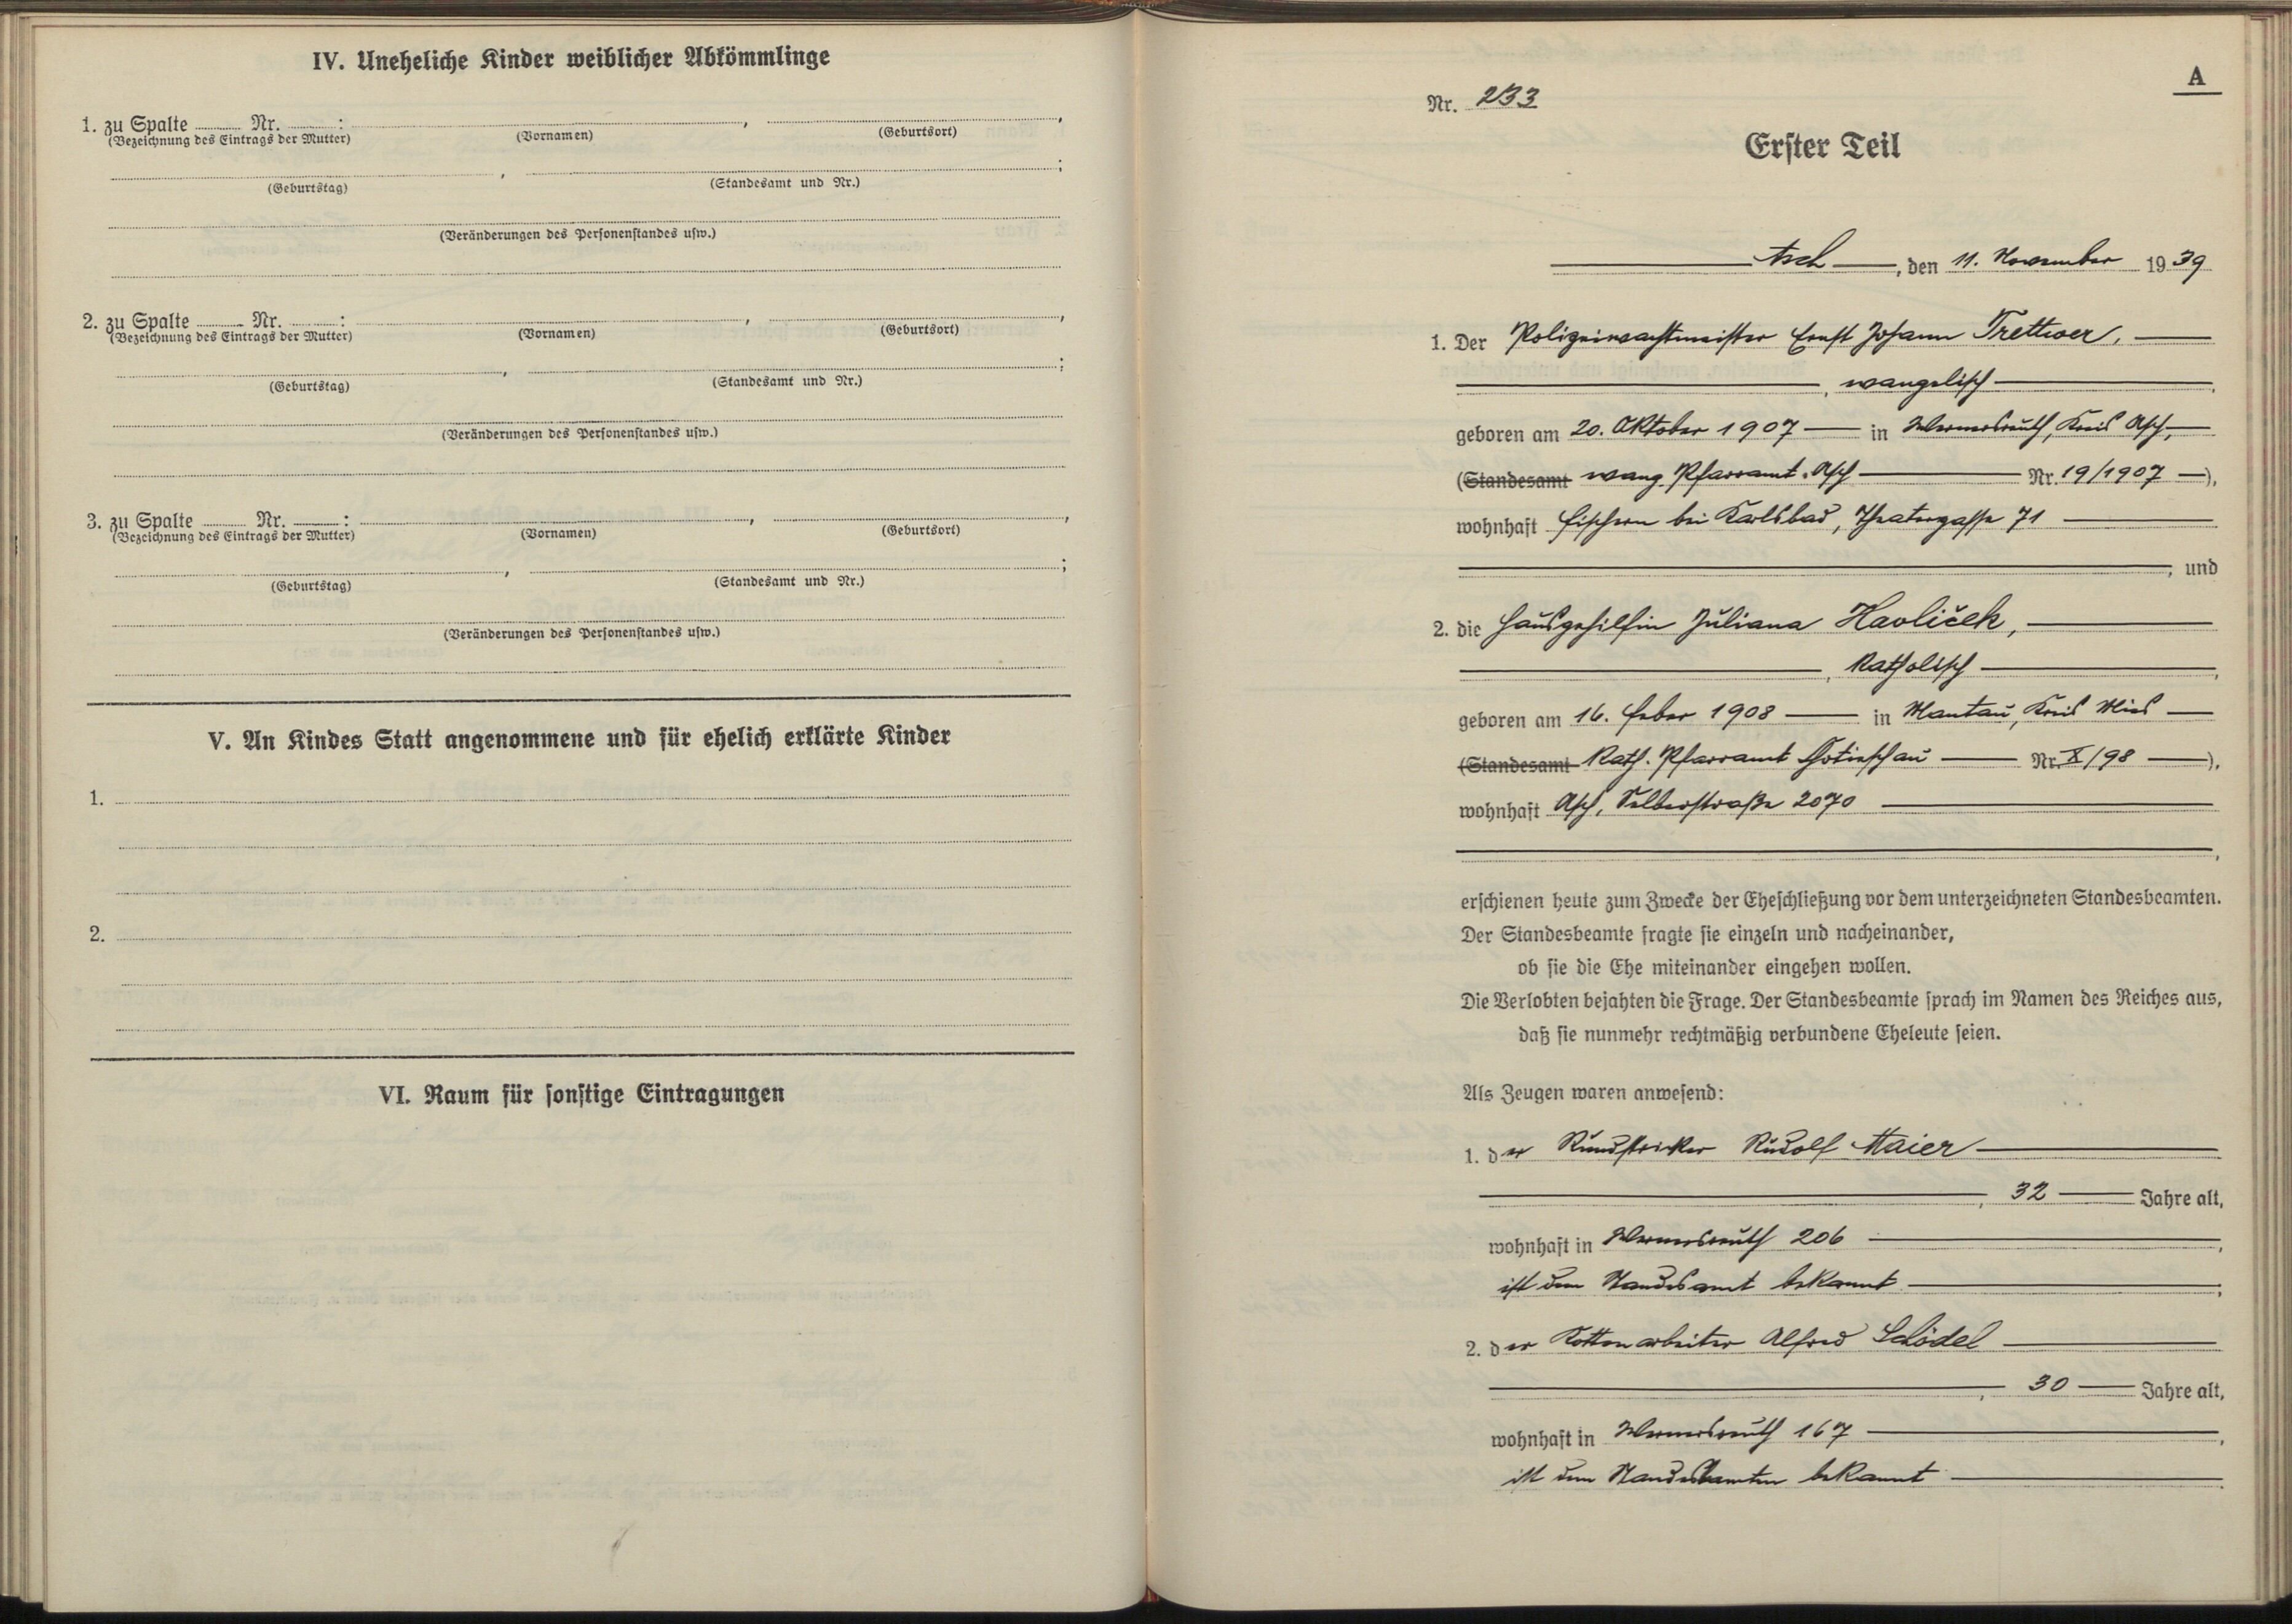 IV. Uneheliche Kinder weiblicher Abkömmlinge
1. zu Spalte ........ Nr. ........ : ........ , ........ ,
(Bezeichnung des Eintrags der Mutter) (Vornamen) (Geburtsort)
........ , ........ ;
(Geburtstag) (Standesamt und Nr.)
(Veränderungen des Personenstandes usw.)
2. zu Spalte ........ Nr. ........ : ........ , ........ ,
(Bezeichnung des Eintrags der Mutter) (Vornamen) (Geburtsort)
........ , ........ ;
(Geburtstag) (Standesamt und Nr.)
(Veränderungen des Personenstandes usw.)
3. zu Spalte ........ Nr. ........ : ........ , ........ ,
(Bezeichnung des Eintrags der Mutter) (Vornamen) (Geburtsort)
........ , ........ ;
(Geburtstag) (Standesamt und Nr.)
(Veränderungen des Personenstandes usw.)
V. An Kindes Statt angenommene und für ehelich erklärte Kinder
1.
2.
VI. Raum für sonstige Eintragungen
A
Nr. 233
Erster Teil
Asch, den 11. November 1939
1. Der Polizeiwachtmeister Ernst Johann Trettwer,
, evangelisch ,
geboren am 20. Oktober 1907 in Wernersreuth, Kreis Asch,
(Standesamt evang. Pfarramt Asch Nr. 19/1907 ),
wohnhaft Fischern bei Karlsbad, Theatergasse 71
, und
2. die Hausgehilfin Juliana Havlíček,
, katholisch ,
geboren am 16. Feber 1908 in Mantau, Kreis Mies
(Standesamt Kath. Pfarramt Chotieschau Nr. X/98 ),
wohnhaft Asch, Selberstraße 2070
,
erschienen heute zum Zwecke der Eheschließung vor dem unterzeichneten Standesbeamten.
Der Standesbeamte fragte sie einzeln und nacheinander,
ob sie die Ehe miteinander eingehen wollen.
Die Verlobten bejahten die Frage. Der Standesbeamte sprach im Namen des Reiches aus,
daß sie nunmehr rechtmäßig verbundene Eheleute seien.
Als Zeugen waren anwesend:
1. der Rundstricker Rudolf Maier
, 32 Jahre alt,
wohnhaft in Wernersreuth 206 ,
ist dem Standesamt bekannt ;
2. der Kettenarbeiter Alfred Schödel
, 30 Jahre alt,
wohnhaft in Wernersreuth 167 ,
ist dem Standesbeamten bekannt .